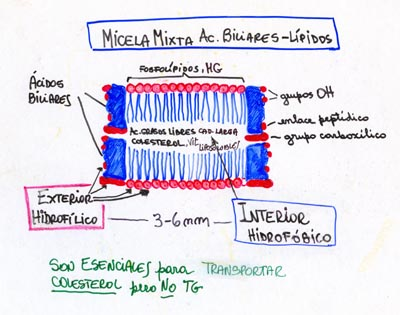 MICELA MIXTA AC. BILIARES-LÍPIDOS
FOSFOLÍPIDOS, MG
ÁCIDOS
BILIARES
grupos OH
enlace peptídico
grupo carboxílico
AC. GRASOS LIBRES CAD. LARGA
COLESTEROL, VIT. LIPOSOLUBLES
EXTERIOR
HIDROFÍLICO
3-6mm
INTERIOR
HIDROFÓBICO
SON ESENCIALES para TRANSPORTAR
COLESTEROL pero NO TG